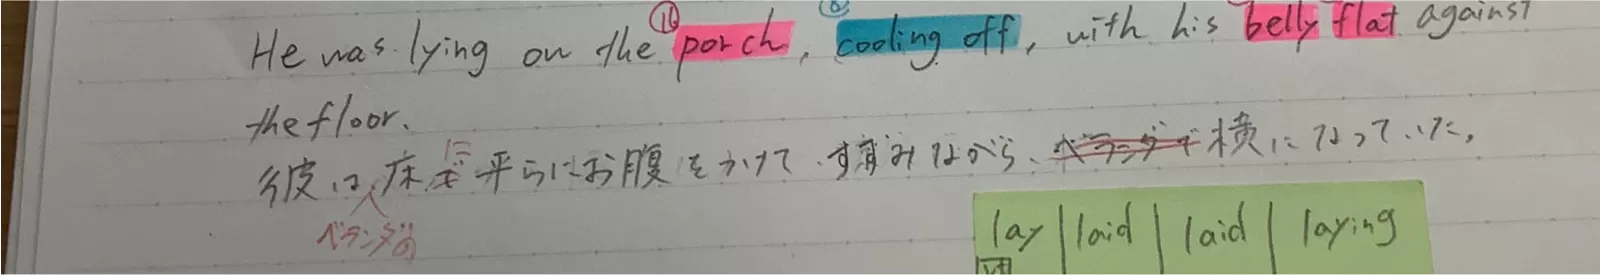 ⑯ ⑧
He was lying on the porch, cooling off, with his belly flat against
the floor.
に
彼は床を平らにお腹をつけて、涼みながら、ベランダで横になっていた。
ベランダの
lay | laid | laid | laying
vt